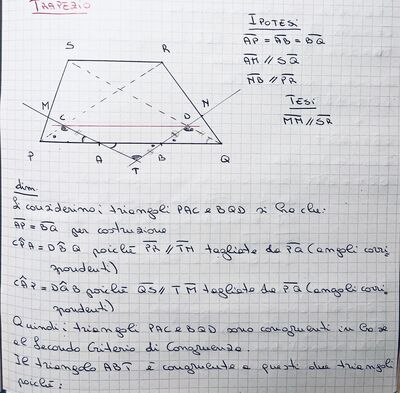 TRAPEZIO
IPOTESI
A̅P̅ = A̅B̅ = B̅Q̅
A̅M̅ // S̅Q̅
N̅B̅ // P̅R̅
TESI
M̅N̅ // S̅R̅
S R
M C D N
P A B Q
T
dim.
Si considerino i triangoli PAC e BQD si ha che:
A̅P̅ = B̅Q̅ per costruzione
CP̂A = DB̂Q poichè P̅R̅ // T̅N̅ tagliate da P̅Q̅ (angoli corri-
spondenti)
CÂP = DQ̂B poichè Q̅S̅ // T̅M̅ tagliate da P̅Q̅ (angoli corri-
spondenti)
Quindi i triangoli PAC e BQD sono congruenti in base
al Secondo Criterio di Congruenza.
Il triangolo ABT è congruente a questi due triangoli
poichè: